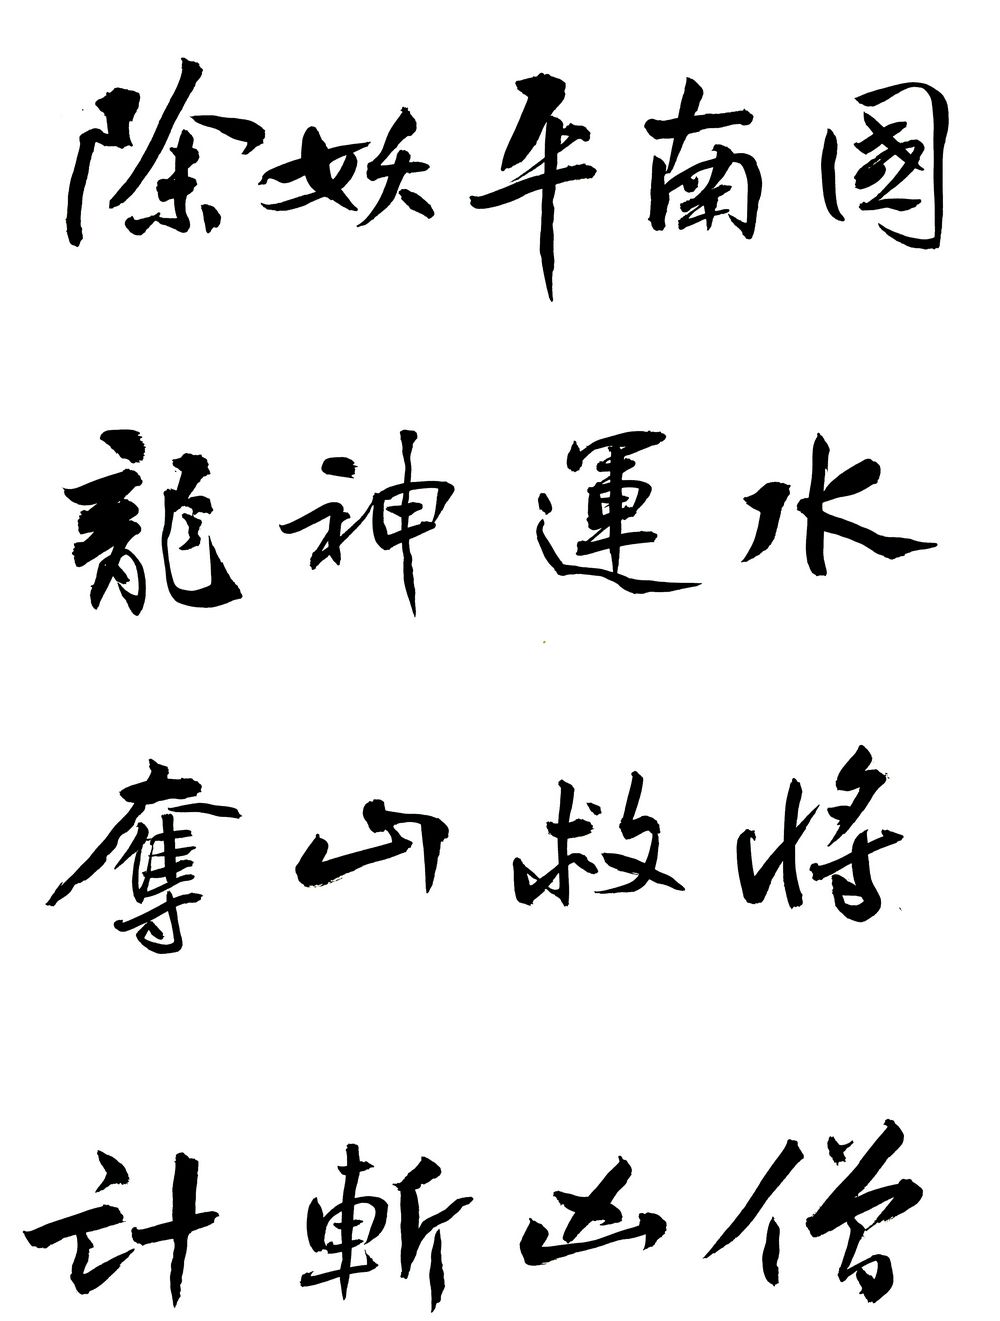 除妖平南國
龍神運水
奪山救將
計斬凶僧